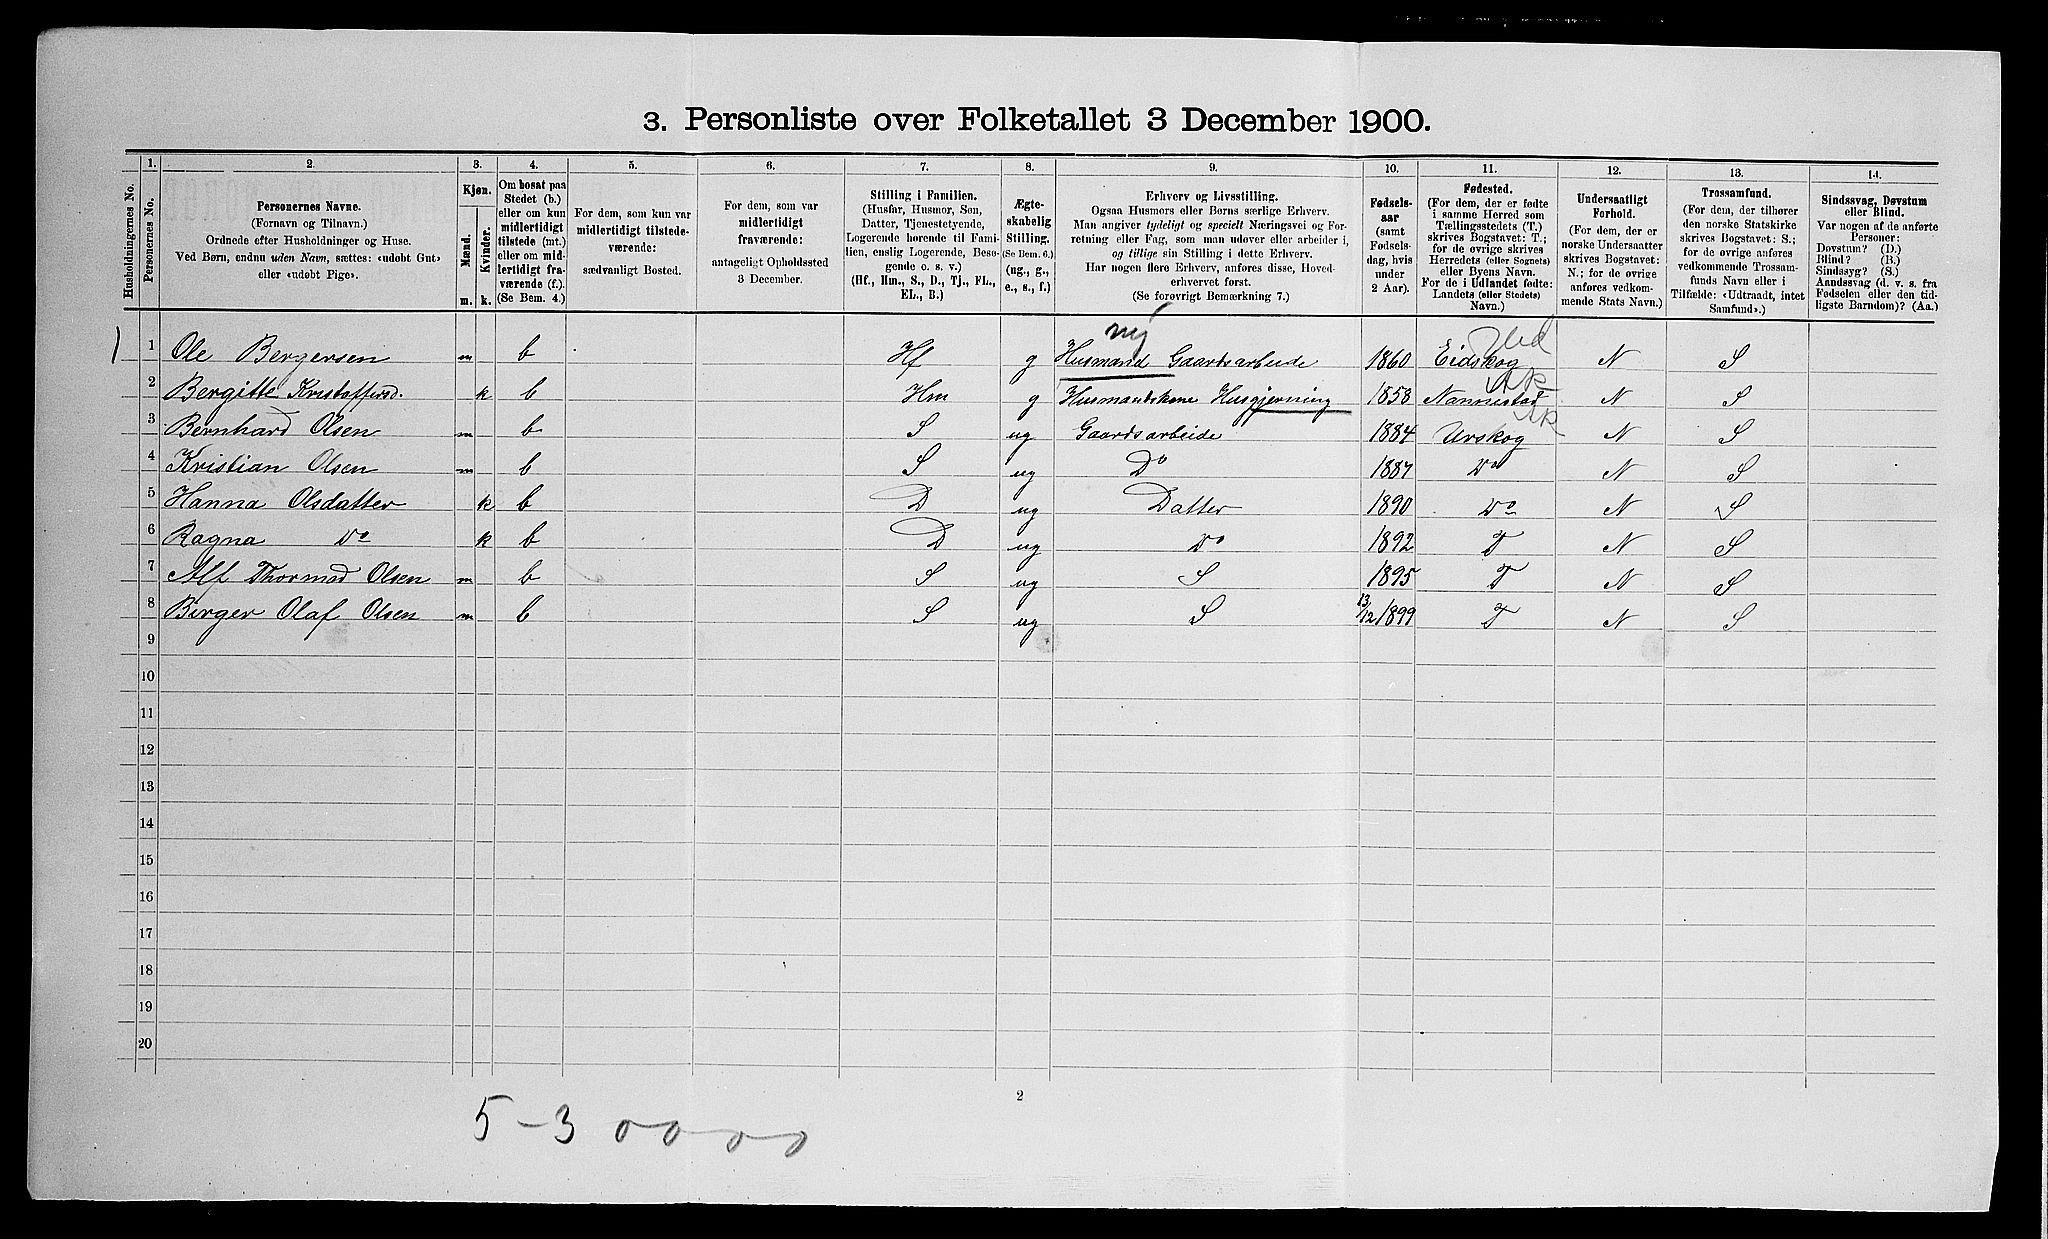 3. Personliste over Folketallet 3 December 1900.
Husholdningernes No.
1.
Personernes No.
2.
Personernes Navne.
(Fornavn og Tilnavn.)
Ordnede efter Husholdninger og Huse.
Ved Børn, endnu uden Navn, sættes: «udobt Gut»
eller «udobt Pige».
3.
Kjøn.
Mænd.
Kvinder.
m.
k.
4.
Om bosat paa
Stedet (b.)
eller om kun
midlertidigt
tilstede (mt.)
eller om mid-
lertidigt fra-
værende (f.).
(Se Bem. 4.)
5.
For dem, som kun var
midlertidigt tilstede-
værende:
sædvanligt Bosted.
6.
For dem, som var
midlertidigt
fraværende:
antageligt Opholdssted
3 December.
7.
Stilling i Familien.
(Husfar, Husmor, Søn,
Datter, Tjenestetyende,
Logerende hørende til Fami-
lien, enslig Logerende, Beso-
gende o. s. v.)
(Hf., Hm., S., D., Tj., FL.,
EL., B.)
8.
Ægte-
skabelig
Stilling.
(Se Bem. 6.)
(ug., g.,
e., s., f.)
9.
Erhverv og Livsstilling.
Ogsaa Husmors eller Børns særlige Erhverv.
Man angiver tydeligt og specielt Næringsvei og For-
retning eller Fag, som man udøver eller arbeider i,
og tillige sin Stilling i dette Erhverv.
Har nogen flere Erhverv, anføres disse, Hoved-
erhvervet først.
(Se forøvrigt Bemærkning 7.)
10.
Fødsels-
aar
(samt
Fødsels-
dag, hvis
under
2 Aar).
11.
Fødested.
(For dem, der er fødte
i samme Herred som
Tællingsstedets (T.)
skrives Bogstavet: T.;
for de øvrige skrives
Herredets (eller Sognets)
eller Byens Navn.
For de i Udlandet fødte:
Landets (eller Stedets)
Navn.)
12.
Undersaatligt
Forhold.
(For dem, der er
norske Undersaatter
skrives Bogstavet:
N.; for de øvrige
anføres vedkom-
mende Stats Navn.)
13.
Trossamfund.
(For dem, der tilhører
den norske Statskirke
skrives Bogstavet: S.;
for de øvrige anføres
vedkommende Trossam-
funds Navn eller i
Tilfælde: «Udtraadt, intet
Samfund».)
14.
Sindssvag, Døvstum
eller Blind.
Var nogen af de anførte
Personer:
Døvstum? (D.)
Blind? (B.)
Sindssyg? (S.)
Aandssvag (d. v. s. fra
Fødselen eller den tid-
ligste Barndom)? (Aa.)
nej Hed
1 1 Ole Bergersen m b Hf g Husmand Gaardsarbeide 1860 Eidskog N S
Ak
2 Bergitte Kristoffersd. k b Hm g Husmandskone Husgjerning 1858 Nannestad N S
Ak
3 Bernhard Olsen m b S ug Gaardsarbeide 1884 Urskog N S
4 Kristian Olsen m b S ug Do 1887 Do N S
5 Hanna Olsdatter k b D ug Datter 1890 Do N S
6 Ragna Do k b D ug Do 1892 T N S
7 Alf Thormod Olsen m b S ug S 1895 T N S
8 Berger Olaf Olsen m b S ug S 13/12 1899 T N S
9
10
11
12
13
14
15
16
17
18
19
20
2
5 - 3 0 0 0 0